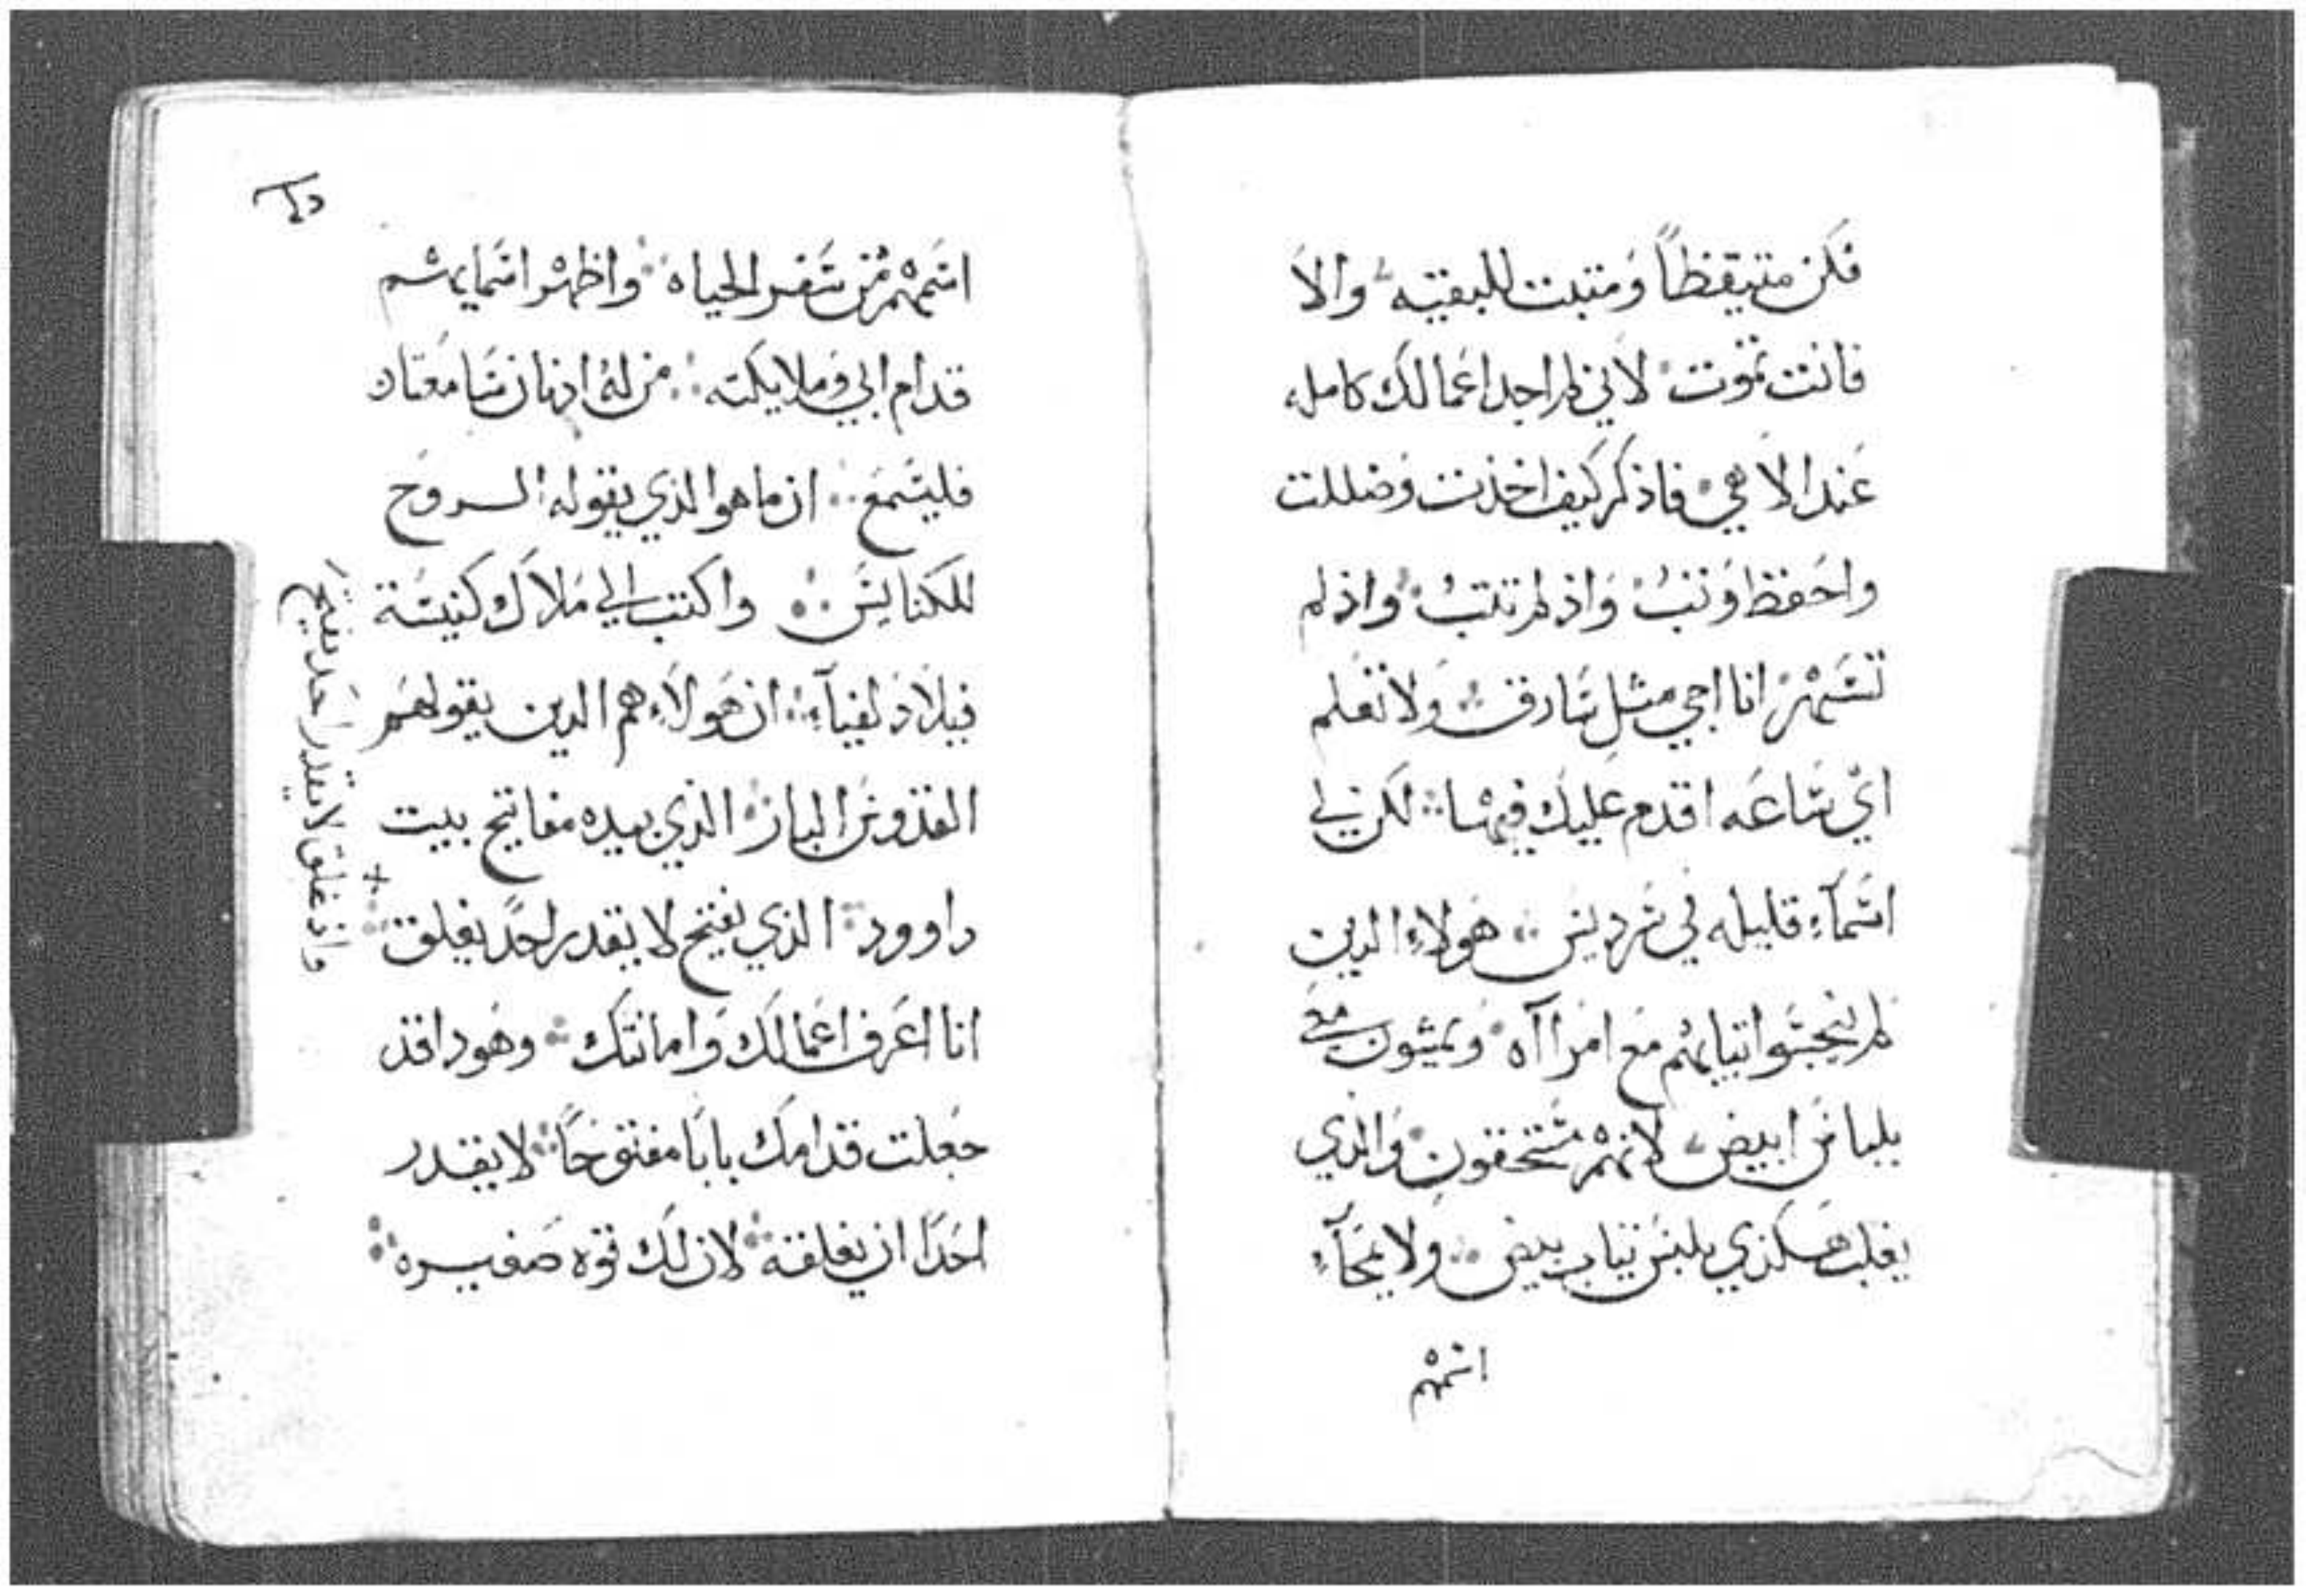 فكن متيقظاً ومتبت للبقيه والا
فانت تموت لاني لم اجد اعمالك كامله
عند الاهي فاذكر كيف اخذت وضللت
واحفظ وتب واذ لم تتب واذ لم
تسهر انا اجي مثل سارق ولا تعلم
اي ساعه اقدم عليك فيها لكن لي
اسمآء قليله في سرديس هولاء الدين
لم ينجسوا تيابهم مع امراآه ويمشون معي
بلباس ابيض لانهم مستحقون والذي
يغلب هكذي يلبس تياب بيض ولا يمحآء
اسمهم
اسمهم من سفر الحياه واظهر اسمايهم
قدام ابي وملايكته من له اذنان سامعتان
فليسمع ان ما هو الذي يقوله الروح
للكنايس واكتب الي ملاك كنيسة
فيلادلفيآء ان هولاء هم الدين يقولهم
القدوس البار الذي بيده مفاتيح بيت
داوود الذي يفتح لا يقدر احد يغلق
واذ غلق لا يقدر احد يفتح
انا اعرف اعمالك وامانتك وهودا قد
جعلت قدامك بابا مفتوحاً لا يقدر
احدا ان يغلقه لان لك قوه صغيره